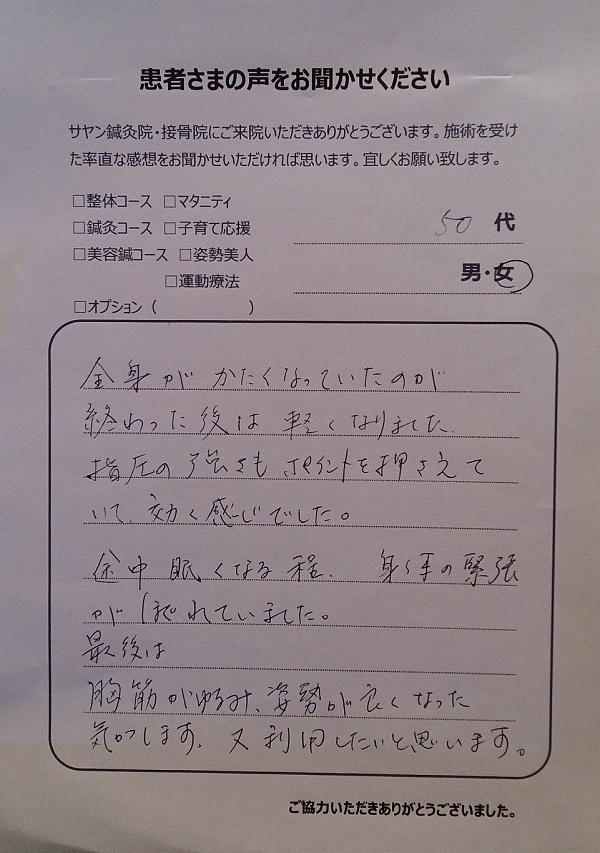 患者さまの声をお聞かせください
サヤン鍼灸院・接骨院にご来院いただきありがとうございます。施術を受け
た率直な感想をお聞かせいただければ思います。宜しくお願い致します。
□整体コース □マタニティ
□鍼灸コース □子育て応援
□美容鍼コース □姿勢美人
□運動療法
□オプション（ ）
50 代
男・女
全身がかたくなっていたのが
終わった後は軽くなりました。
指圧の強さもポイントを押さえて
いて、効く感じでした。
途中眠くなる程、身体の緊張
がほぐれていました。
最後は
胸筋がゆるみ、姿勢が良くなった
気がします。又利用したいと思います。
ご協力いただきありがとうございました。